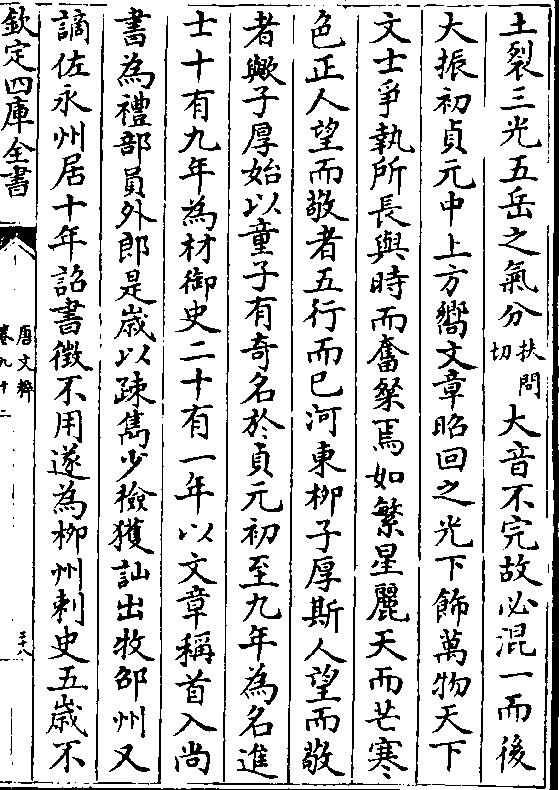 土裂三光五岳之氣分扶問切大音不完故必混一而後
大振初貞元中上方嚮文章昭回之光下飾萬物天下
文士爭執所長與時而奮粲焉如繁星麗天而芒寒
色正人望而敬者五行而已河東栁子厚斯人望而敬
者歟子厚始以童子有奇名於貞元初至九年為名進
士十有九年為材御史二十有一年以文章稱首入尚
書為禮部員外郎是歲以疎雋少檢獲訕出牧邵州又
謫佐永州居十年詔書徵不用遂為栁州刺史五歲不
欽定四庫全書
唐文粹
卷九十二
三十八